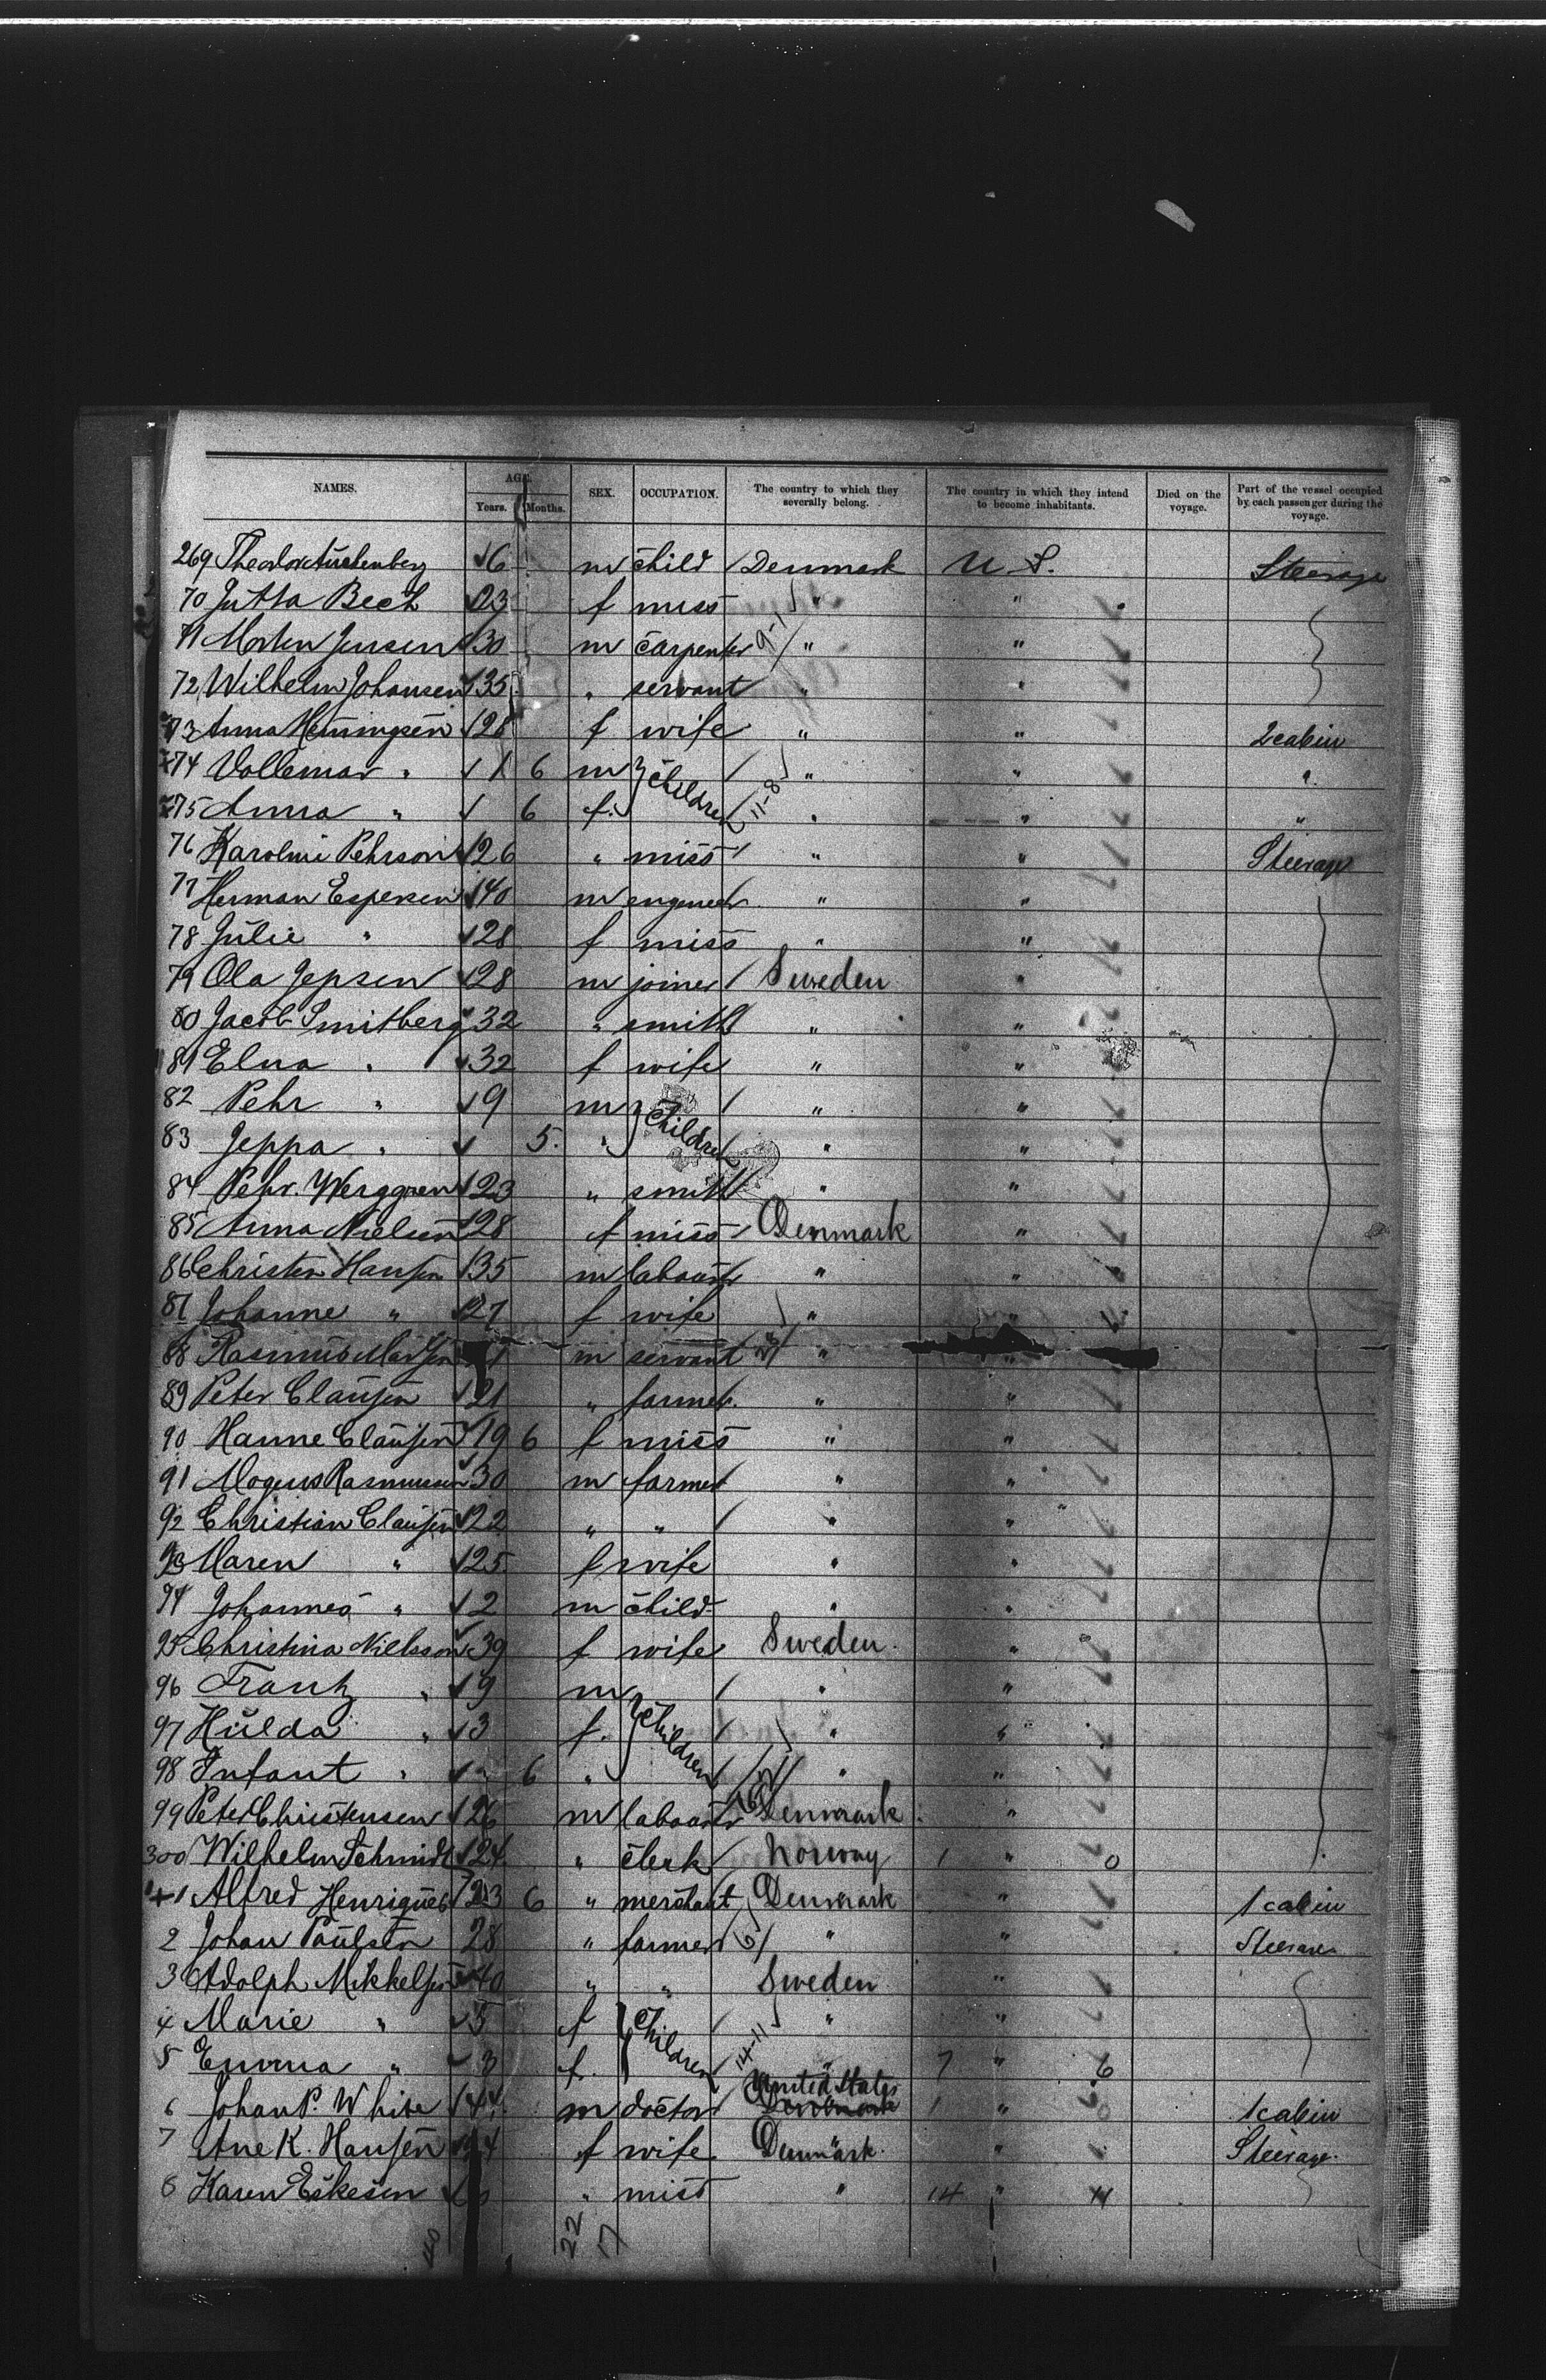 NAMES. AGE. SEX. OCCUPATION. The country to which they severally belong. The country in which they intend to become inhabitants. Died on the voyage. Part of the vessel occupied by each passenger during the voyage.
Years. Months.
269 Theodor 6 m child Denmark U. S. Steerage
70 Jutta Bech 23 f miss " "
71 Morten Jensen 30 m carpenter 9-1 " "
72 Wilhelm Johansen 35 " servant " "
73 Anna Henningsen 28 f wife " " 2 cabin
74 Vollemar " 1 6 m } children " " "
75 Anna " 6 f. 11-8 " " "
76 Karoline Pehrson 26 " miss " " Steerage
77 Herman Espersen 40 m engineer " "
78 Julie " 28 f miss " "
79 Ola Jepsen 28 m joiner Sweden "
80 Jacob Smitberg 32 " smith " "
81 Elna " 32 f wife " "
82 Pehr " 9 m } children " "
83 Jeppa " 5. " " "
84 Pehr. Werggren 23 " smith " "
85 Anna Nielsen 28 f miss Denmark "
86 Christen Hansen 35 m labourer " "
87 Johanne " 27 f wife " "
88 Rasmus Madsen m servant " "
89 Peter Clausen 21 " farmer. " "
90 Hanne Clausen 19 6 f miss " "
91 Mogens Rasmussen 30 m farmer " "
92 Christian Clausen 22 " " " "
93 Maren " 25 f wife " "
94 Johannes " 2 m child " "
95 Christina Nielsson 39 f wife Sweden "
96 Frantz " 9 m } children " "
97 Hulda " 3 f. " "
98 Infant " 6 " " "
99 Peter Christensen 26 m labourer Denmark "
300 Wilhelm Schmidt 24 " clerk Norway 1 " 0
1 Alfred Henriques 23 6 " merchant Denmark " 1 cabin
2 Johan Paulsen 28 " farmer " " Steerage
3 Adolph Mikkelsen 40 " " Sweden "
4 Marie " 5 f } children " "
5 Emma " 3 f. 14-11 " 7 " 6
6 Johan P. White 44 m doctor United States Denmark 1 " 0 1 cabin
7 Ane K. Hansen f wife Denmark " Steerage
8 Karen Eskesen " miss " 14 " 11
40 22 17